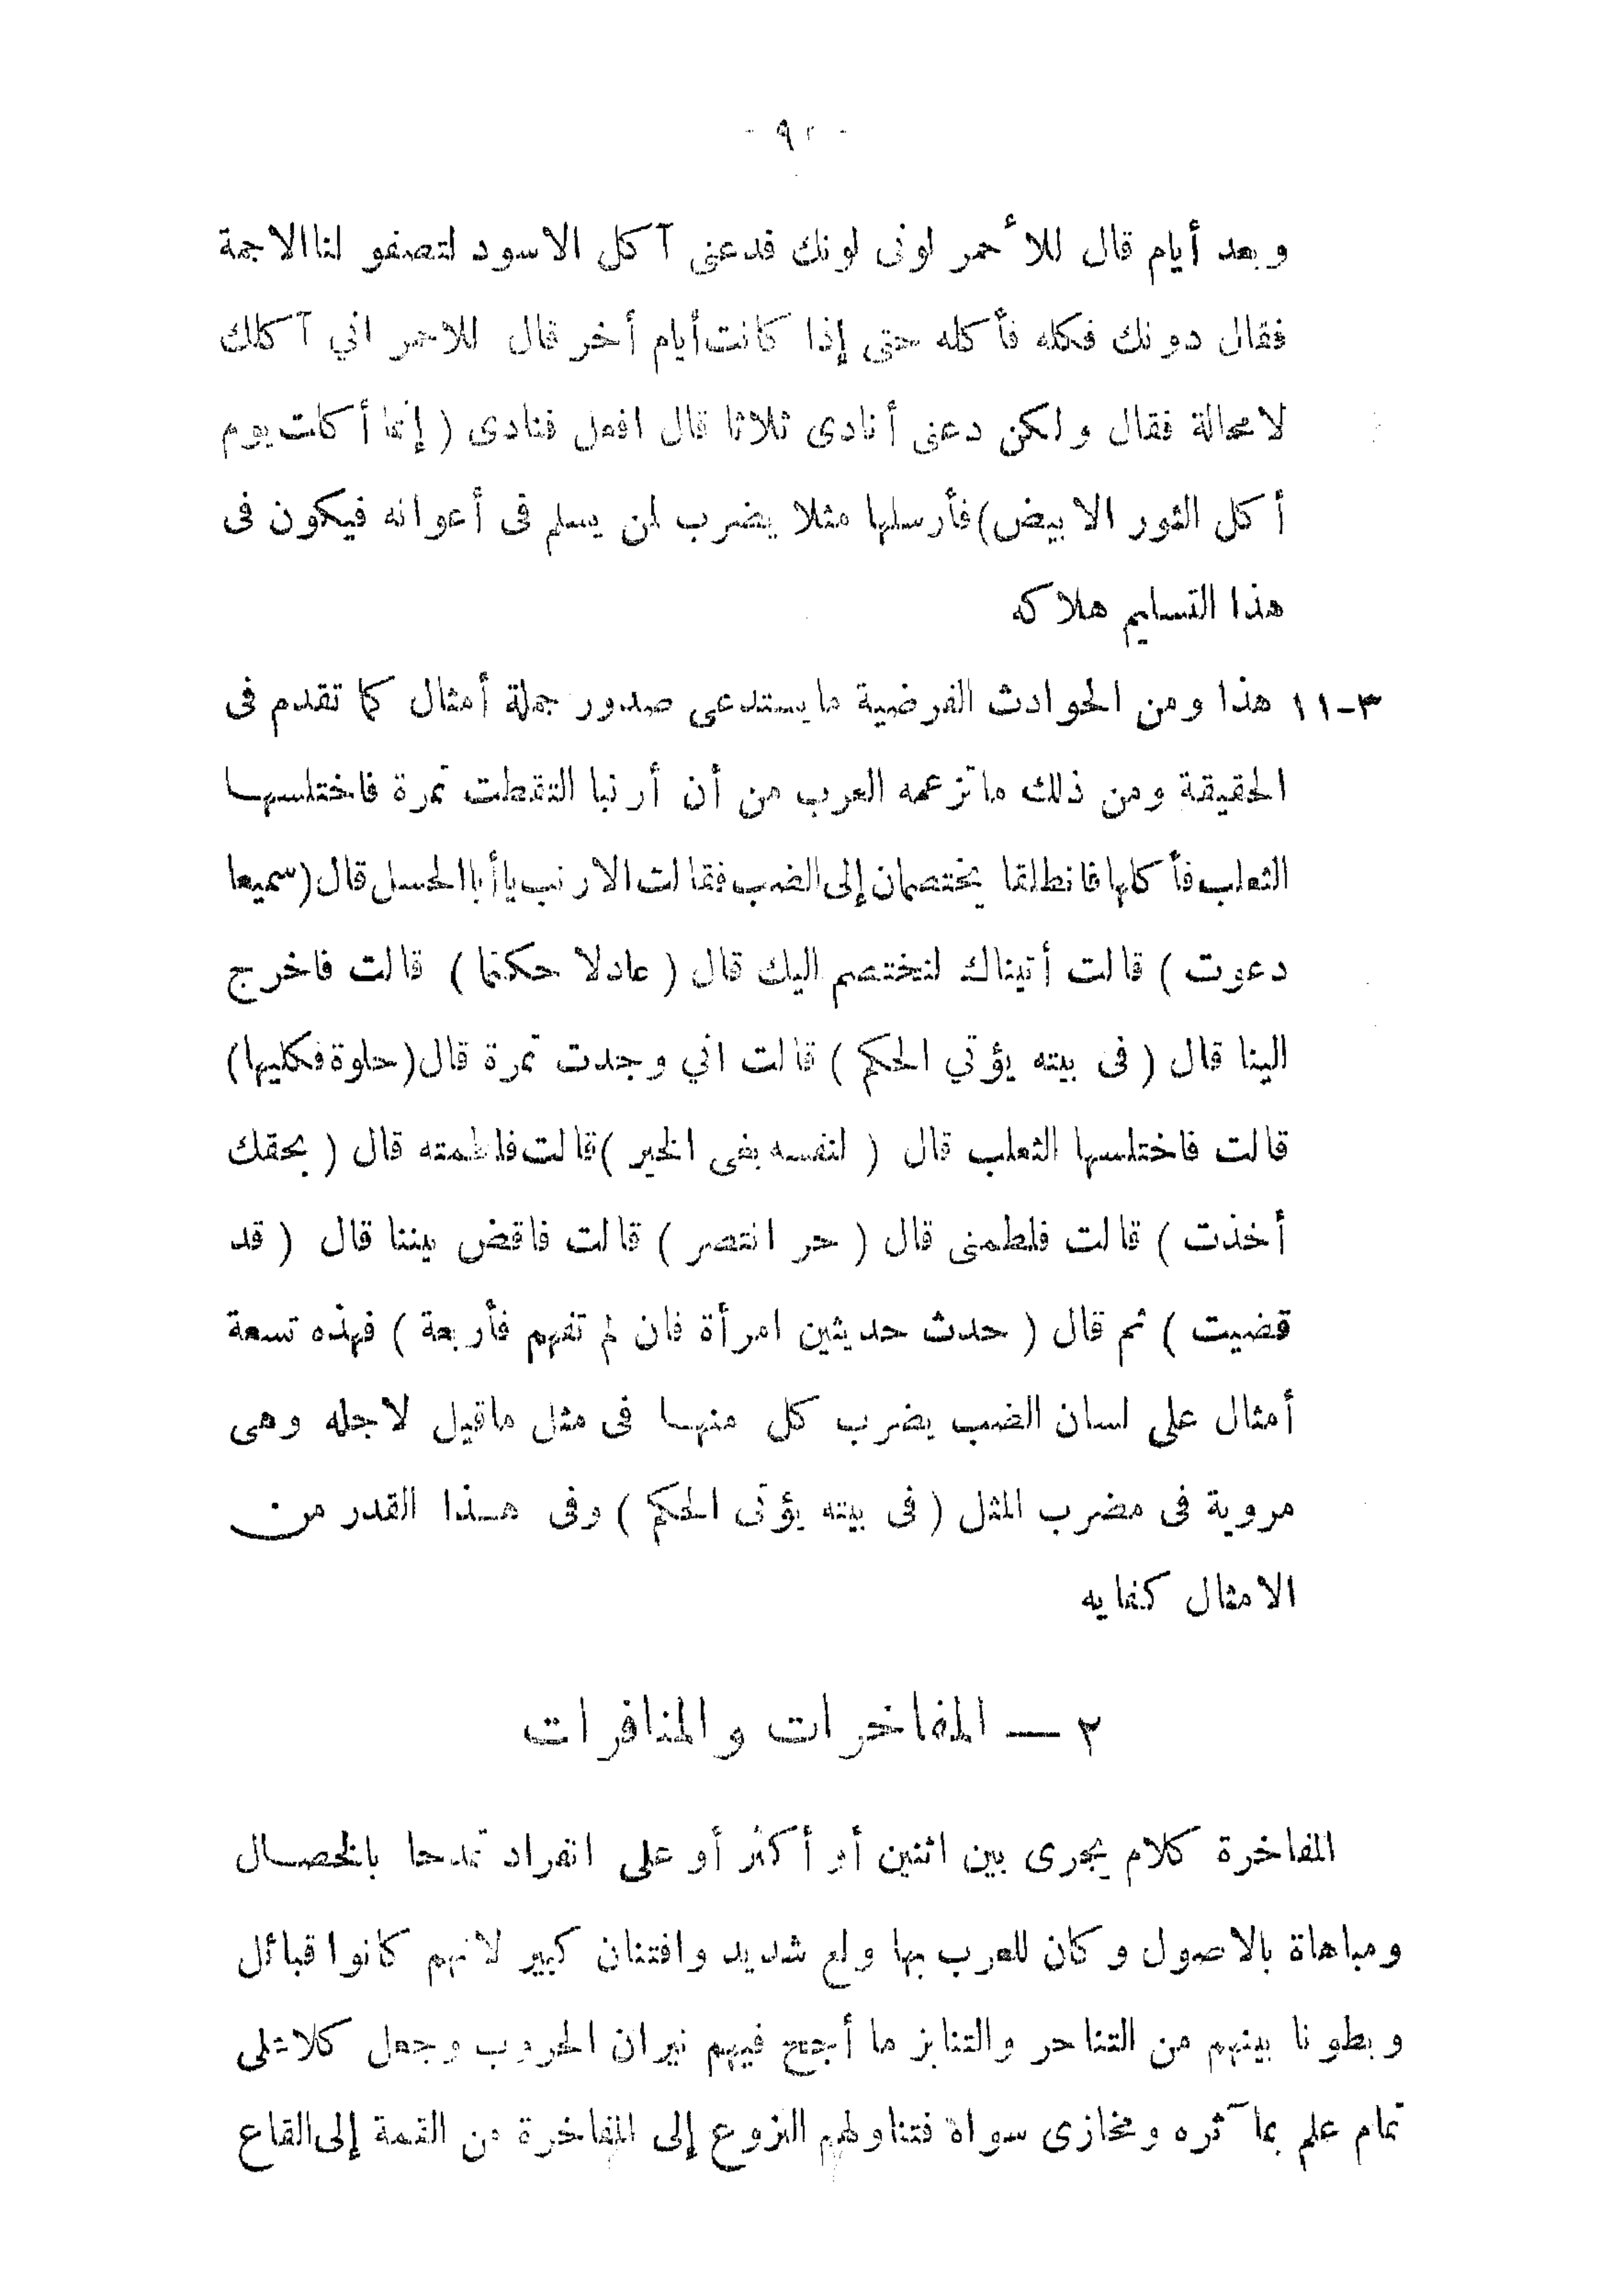 - ٩٢ -
وبعد أيام قال للأحمر لونى لونك فدعنى آكل الاسود لتصفو لنا الاجمة
فقال دونك فكله فأكله حتى إذا كانت أيام أخر قال للاحمر اني آكلك
لا محالة فقال ولكن دعنى أنادى ثلاثا قال افعل فنادى ( إنما أكلت يوم
أكل الثور الابيض) فأرسلها مثلا يضرب لمن يسلم فى أعوانه فيكون فى
هذا التسليم هلاكه
٣-١١ هذا ومن الحوادث الفرضية ما يستدعى صدور جملة أمثال كما تقدم فى
الحقيقة ومن ذلك ما تزعمه العرب من أن أرنبا التقطت تمرة فاختلسها
الثعلب فأكلها فانطلقا يختصمان إلى الضب فقالت الارنب يا أبا الحسل قال (سميعا
دعوت ) قالت أتيناك لنختصم اليك قال ( عادلا حكمتما ) قالت فاخرج
الينا قال ( فى بيته يؤتي الحكم ) قالت اني وجدت تمرة قال (حلوة فكليها)
قالت فاختلسها الثعلب قال ( لنفسه بغى الخير ) قالت فلطمته قال ( بحقك
أخذت ) قالت فلطمنى قال ( حر انتصر ) قالت فاقض بيننا قال ( قد
قضيت ) ثم قال ( حدث حديثين امرأة فان لم تفهم فأربعة ) فهذه تسعة
أمثال على لسان الضب يضرب كل منها فى مثل ماقيل لاجله وهى
مروية فى مضرب المثل ( فى بيته يؤتى الحكم ) وفى هذا القدر من
الامثال كفايه
٢ — المفاخرات والمنافرات
المفاخرة كلام يجرى بين اثنين أو أكثر أو على انفراد تمدحا بالخصال
ومباهاة بالاصول وكان للعرب بها ولع شديد وافتنان كبير لانهم كانوا قبائل
وبطونا بينهم من التناحر والتنابز ما أجج فيهم نيران الحروب وجعل كلا على
تمام علم بمآثره ومخازى سواه فتناولهم النزوع إلى المفاخرة من القمة إلى القاع